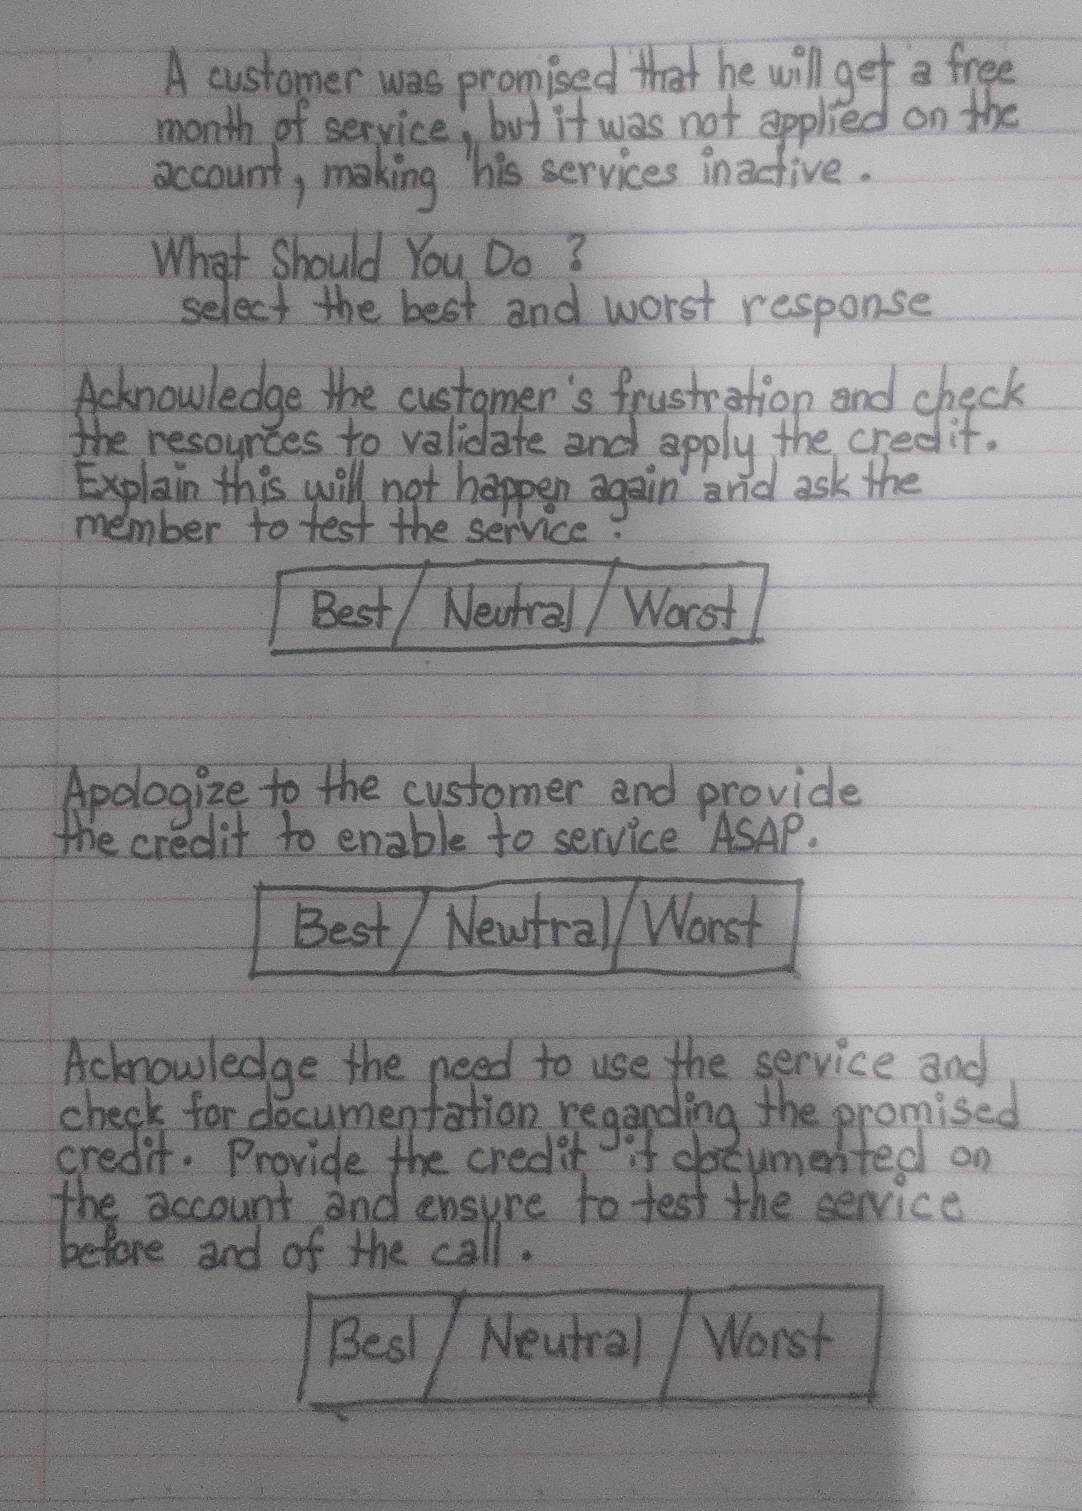 A customer was promised that he will get a free
month of service, but it was not applied on the
account, making his services inactive.
What Should You Do ?
select the best and worst response
Acknowledge the customer's frustration and check
the resources to validate and apply the credit.
Explain this will not happen again and ask the
member to test the service.
Best / Neutral / Worst
Apologize to the customer and provide
the credit to enable to service ASAP.
Best / Newtral / Worst
Acknowledge the need to use the service and
check for documentation regarding the promised
credit. Provide the credit if documented on
the account and ensure to test the service
before and of the call.
Best / Neutral / Worst